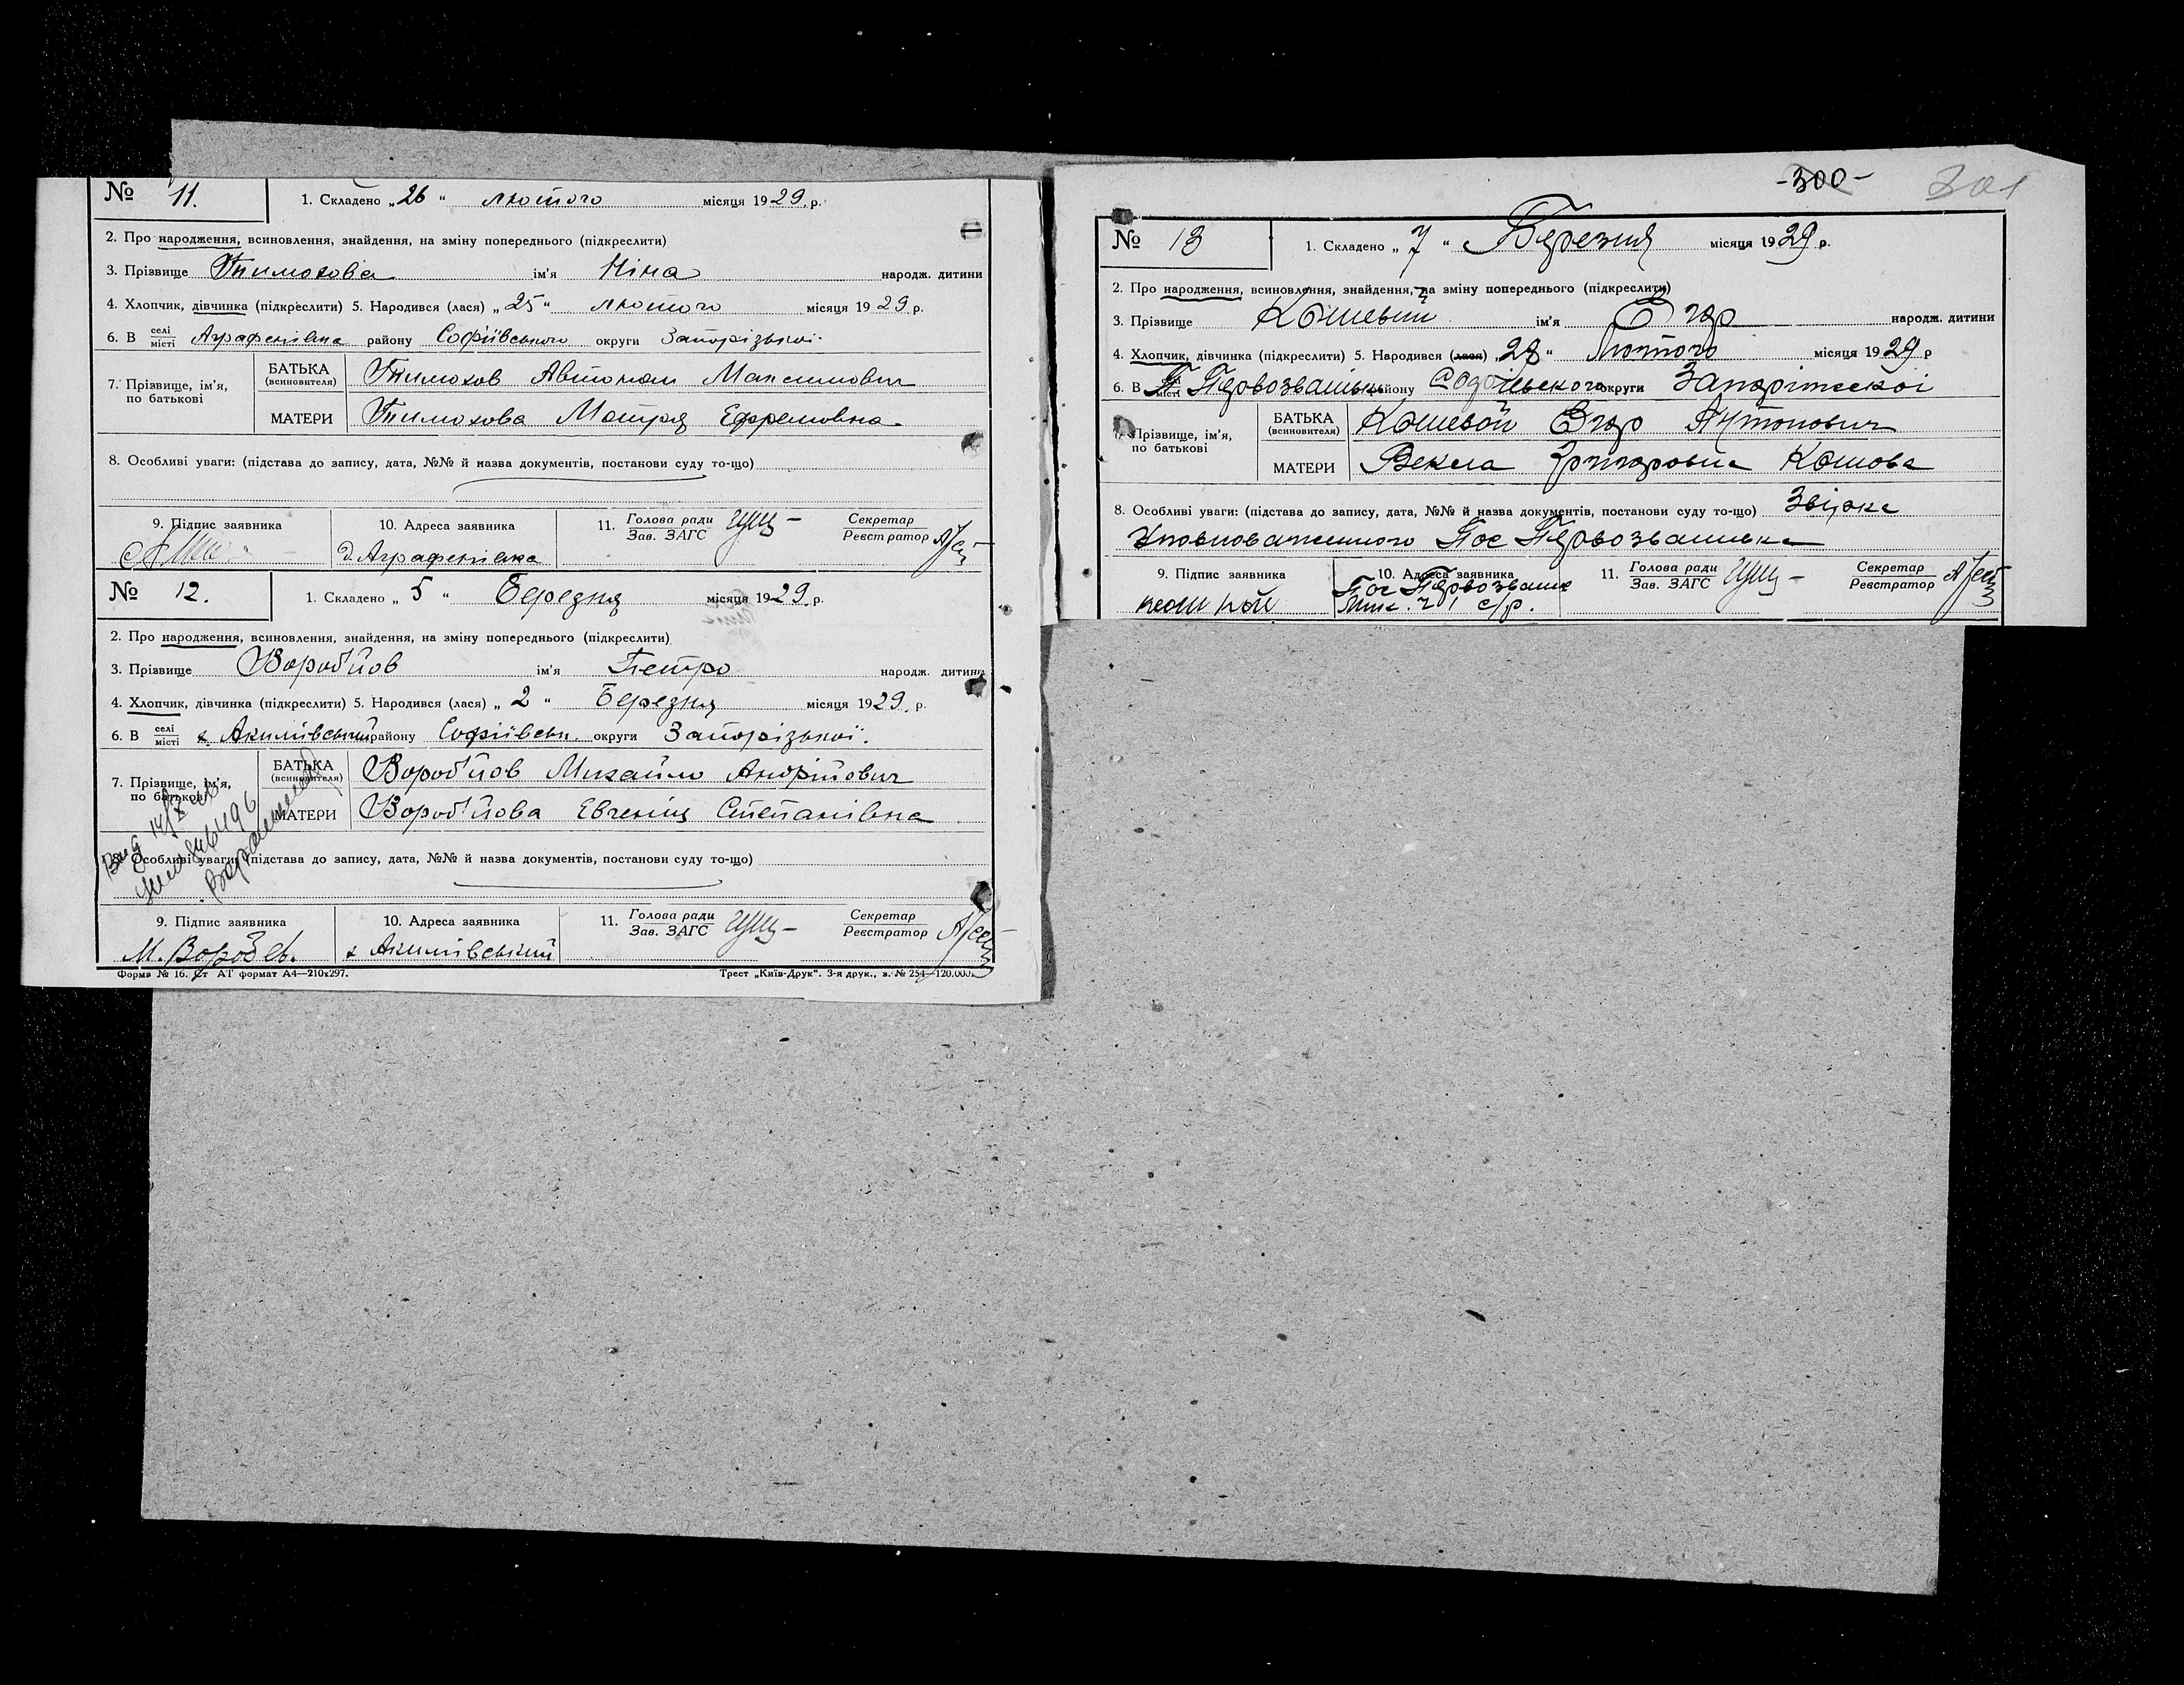 № 11. 1. Складено „26“ лютого місяця 1929. р.
2. Про народження, всиновлення, знайдення, на зміну попереднього (підкреслити)
3. Прізвище Тимохова ім'я Ніна народж. дитини
4. Хлопчик, дівчинка (підкреслити) 5. Народився (лася) „25“ лютого місяця 1929 р.
6. В селі місті Аграфенівка району Софіївського округи Запорізької
7. Прізвище, ім'я, по батькові
БАТЬКА (всиновителя) Тимохов Автоном Максимович
МАТЕРИ Тимохова Мотря Ефремовна.
8. Особливі уваги: (підстава до запису, дата, №№ й назва документів, постанови суду то-що)
9. Підпис заявника 10. Адреса заявника 11. Голова ради Зав. ЗАГС Секретар Реєстратор
д. Аграфенівка
№ 12. 1. Складено „5“ Березня місяця 1929. р.
2. Про народження, всиновлення, знайдення, на зміну попереднього (підкреслити)
3. Прізвище Вороб'йов ім'я Петро народж. дитини
4. Хлопчик, дівчинка (підкреслити) 5. Народився (лася) „2“ Березня місяця 1929. р.
6. В селі місті х. Акимівський району Софіївськ. округи Запорізької.
7. Прізвище, ім'я, по батькові
БАТЬКА (всиновителя) Вороб'йов Михайло Андрійович
МАТЕРИ Вороб'йова Евгенія Степанівна
8. Особливі уваги: (підстава до запису, дата, №№ й назва документів, постанови суду то-що)
9. Підпис заявника 10. Адреса заявника 11. Голова ради Зав. ЗАГС Секретар Реєстратор
М. Воробев. х Акимівський
Форма № 16. Ст АТ формат А4—210х297. Трест „Київ-Друк“. 3-я друк., з. № 254—120.000.
-300- 301
№ 13 1. Складено „7“ Березня місяця 1929 р.
2. Про народження, всиновлення, знайдення, на зміну попереднього (підкреслити)
3. Прізвище ім'я Егор народж. дитини
4. Хлопчик, дівчинка (підкреслити) 5. Народився (лася) „28“ Лютого місяця 1929 р
6. В місті району округи
7. Прізвище, ім'я, по батькові
БАТЬКА (всиновителя) Кошевой Егор Антонович
МАТЕРИ Векла Григоровна Кошова
8. Особливі уваги: (підстава до запису, дата, №№ й назва документів, постанови суду то-що)
Уповноваженного Пос Первозванівка
9. Підпис заявника 10. Адреса заявника 11. Голова ради Зав. ЗАГС Секретар Реєстратор